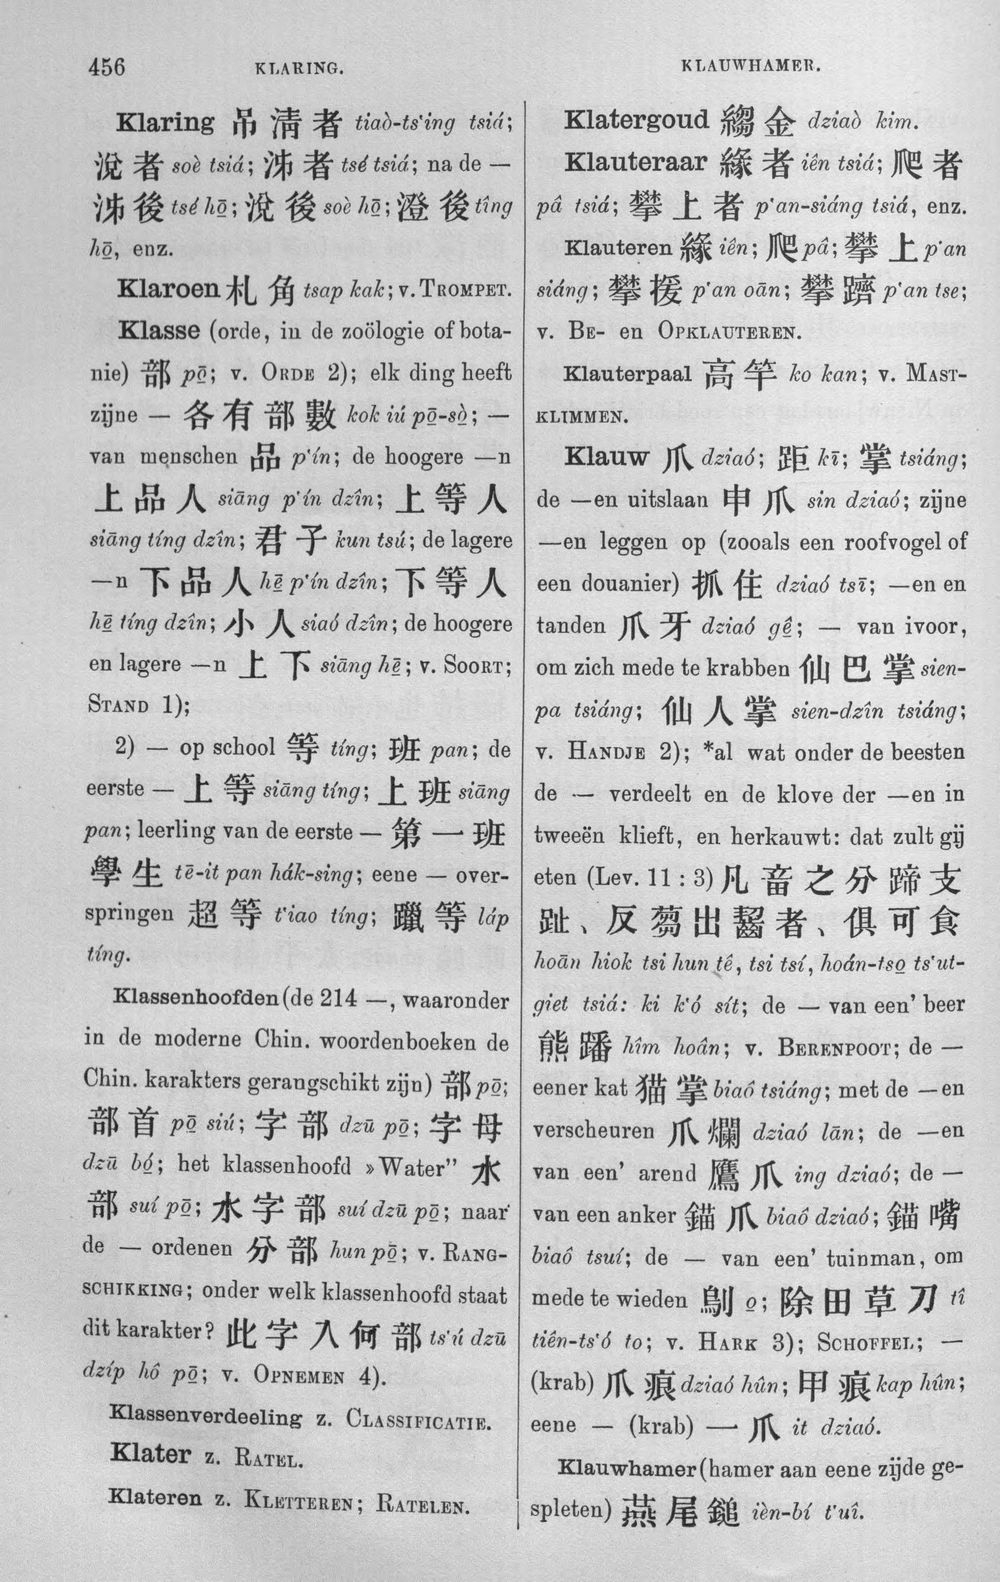 456
KLARING.
KLAUWHAMER.
Klaring 吊清者 tiaò-ts‘ing tsiá;
涗者 soè tsiá; 泲者 tsé tsiá; na de —
泲後 tsé hō; 涗後 soè hō; 澄後 tîng
hō, enz.
Klaroen 札角 tsap kak; v. TROMPET.
Klasse (orde, in de zoölogie of bota-
nie) 部 pō; v. ORDE 2); elk ding heeft
zijne — 各有部數 kok iú pō-sò; —
van menschen 品 p‘ín; de hoogere —n
上品人 siāng p‘ín dzîn; 上等人
siāng tíng dzîn; 君子 kun tsú; de lagere
—n 下品人 hē p‘ín dzîn; 下等人
hē tíng dzîn; 小人 siaó dzîn; de hoogere
en lagere —n 上下 siāng hē; v. SOORT;
STAND 1);
2) — op school 等 tíng; 班 pan; de
eerste — 上等 siāng tíng; 上班 siāng
pan; leerling van de eerste — 第一班
學生 tē-it pan hák-sing; eene — over-
springen 超等 t‘iao tíng; 躐等 láp
tíng.
Klassenhoofden (de 214 —, waaronder
in de moderne Chin. woordenboeken de
Chin. karakters gerangschikt zijn) 部 pō;
部首 pō siú; 字部 dzū pō; 字母
dzū bó; het klassenhoofd »Water” 水
部 suí pō; 水字部 suí dzū pō; naar
de — ordenen 分部 hun pō; v. RANG-
SCHIKKING; onder welk klassenhoofd staat
dit karakter? 此字入何部 ts‘ú dzū
dzíp hô pō; v. OPNEMEN 4).
Klassenverdeeling z. CLASSIFICATIE.
Klater z. RATEL.
Klateren z. KLETTEREN; RATELEN.
Klatergoud 縐金 dziaò kim.
Klauteraar 緣者 iên tsiá; 爬者
pâ tsiá; 攀上者 p‘an-siáng tsiá, enz.
Klauteren 緣 iên; 爬 pâ; 攀上 p‘an
siáng; 攀援 p‘an oān; 攀躋 p‘an tse;
v. BE- en OPKLAUTEREN.
Klauterpaal 高竿 ko kan; v. MAST-
KLIMMEN.
Klauw 爪 dziaó; 距 kī; 掌 tsiáng;
de —en uitslaan 申爪 sin dziaó; zijne
—en leggen op (zooals een roofvogel of
een douanier) 抓住 dziaó tsī; —en en
tanden 爪牙 dziaó gê; — van ivoor,
om zich mede te krabben 仙巴掌 sien-
pa tsiáng; 仙人掌 sien-dzîn tsiáng;
v. HANDJE 2); *al wat onder de beesten
de — verdeelt en de klove der —en in
tweeën klieft, en herkauwt: dat zult gij
eten (Lev. 11 : 3) 凡畜之分蹄支
趾、反芻出齧者、俱可食
hoān hiok tsi hun tê, tsi tsí, hoán-tso ts‘ut-
giet tsiá: ki k‘ó sít; de — van een’ beer
熊蹯 hîm hoân; v. BERENPOOT; de —
eener kat 猫掌 biaô tsiáng; met de —en
verscheuren 爪爛 dziaó lān; de —en
van een’ arend 鷹爪 ing dziaó; de —
van een anker 錨爪 biaô dziaó; 錨嘴
biaô tsuí; de — van een’ tuinman, om
mede te wieden 剭 o; 除田草刀 tî
tiên-ts‘ó to; v. HARK 3); SCHOFFEL; —
(krab) 爪痕 dziaó hûn; 甲痕 kap hûn;
eene — (krab) 一爪 it dziaó.
Klauwhamer (hamer aan eene zijde ge-
spleten) 燕尾鎚 ièn-bí t‘uî.